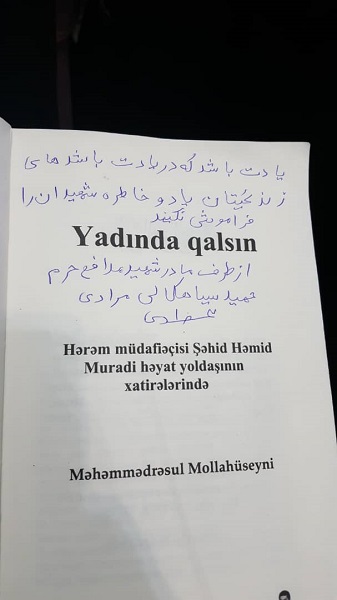 یادت باشد که در یادت باشد های
زندگیتان یاد و خاطره شهیدان را
فراموش نکنید
Yadında qalsın
از طرف مادر شهید مدافع حرم
حمید سیاهکالی مرادی
Hərəm müdafiəçisi Şəhid Həmid
Muradi həyat yoldaşının
xatirələrində
Məhəmmədrəsul Mollahüseyni